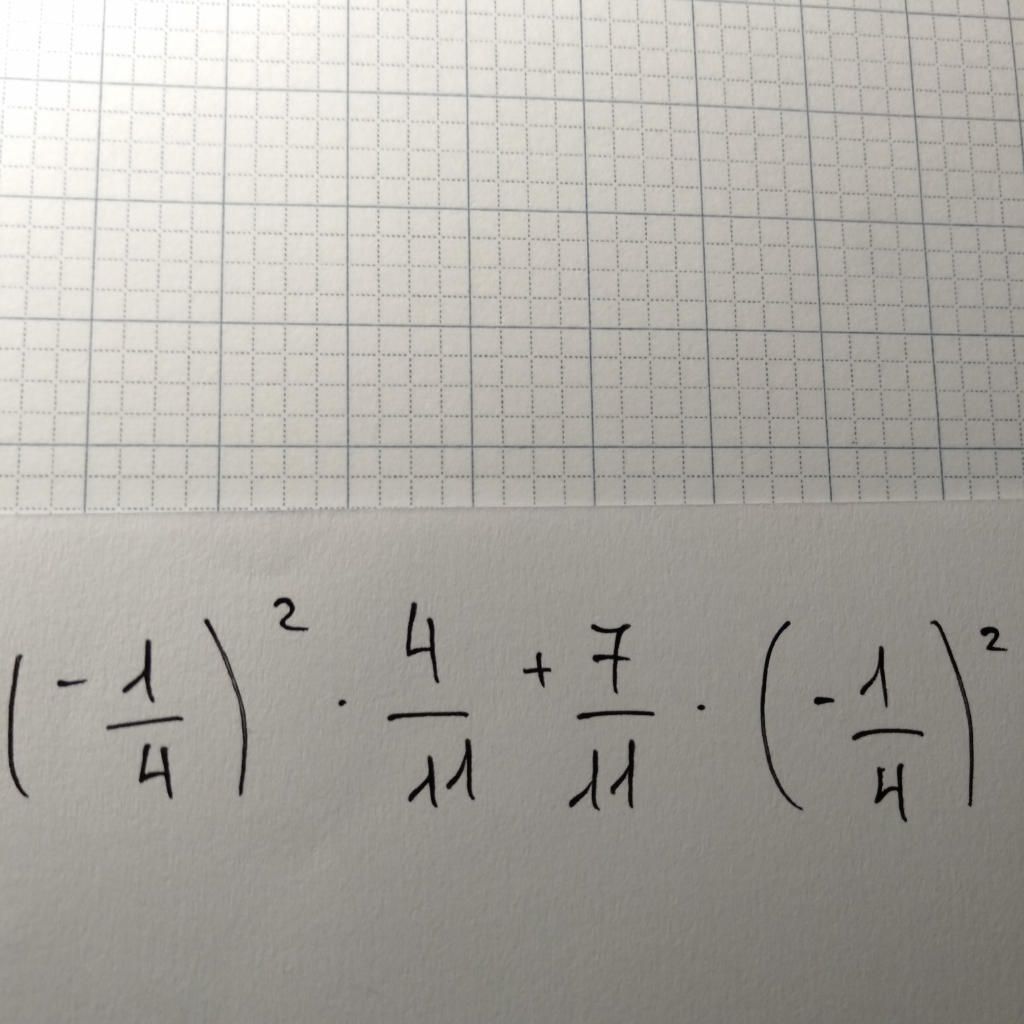 (-1/4)² · 4/11 + 7/11 · (-1/4)²